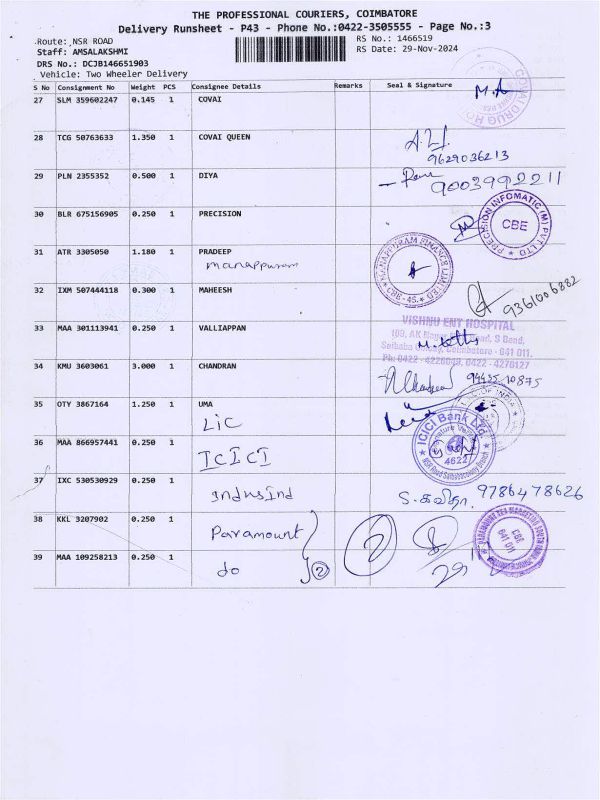 THE PROFESSIONAL COURIERS, COIMBATORE
Delivery Runsheet - P43 - Phone No.:0422-3505555 - Page No.:3
Route: NSR ROAD
RS No.: 1466519
Staff: AMSALAKSHMI
RS Date: 29-Nov-2024
DRS No.: DCJB146651903
Vehicle: Two Wheeler Delivery
S No Consignment No Weight PCS Consignee Details Remarks Seal & Signature
27 SLM 359602247 0.145 1 COVAI
COVAI DRUG
28 TCG 50763633 1.350 1 COVAI QUEEN
9629036213
29 PLN 2355352 0.500 1 DIYA
9003992211
30 BLR 675156905 0.250 1 PRECISION
PRECISION INFOMATIC (M) PVT LTD
CBE
31 ATR 3305050 1.180 1 PRADEEP
manappuram
MANAPPURAM FINANCE LIMITED
CBE-45
32 IXM 507444118 0.300 1 MAHEESH
9361006882
33 MAA 301113941 0.250 1 VALLIAPPAN
VISHNU ENT HOSPITAL
Coimbatore - 641 011.
Ph: 0422 - 4226049, 0422 - 4270127
34 KMU 3603061 3.000 1 CHANDRAN
94435 10875
35 OTY 3867164 1.250 1 UMA
LIC
OF INDIA
36 MAA 866957441 0.250 1
ICICI
ICICI Bank Ltd
4622
37 IXC 530530929 0.250 1
Indusind
S. கவிதா. 9786478626
38 KKL 3207902 0.250 1
Paramount
39 MAA 109258213 0.250 1
do
2
2
CBE
641 011